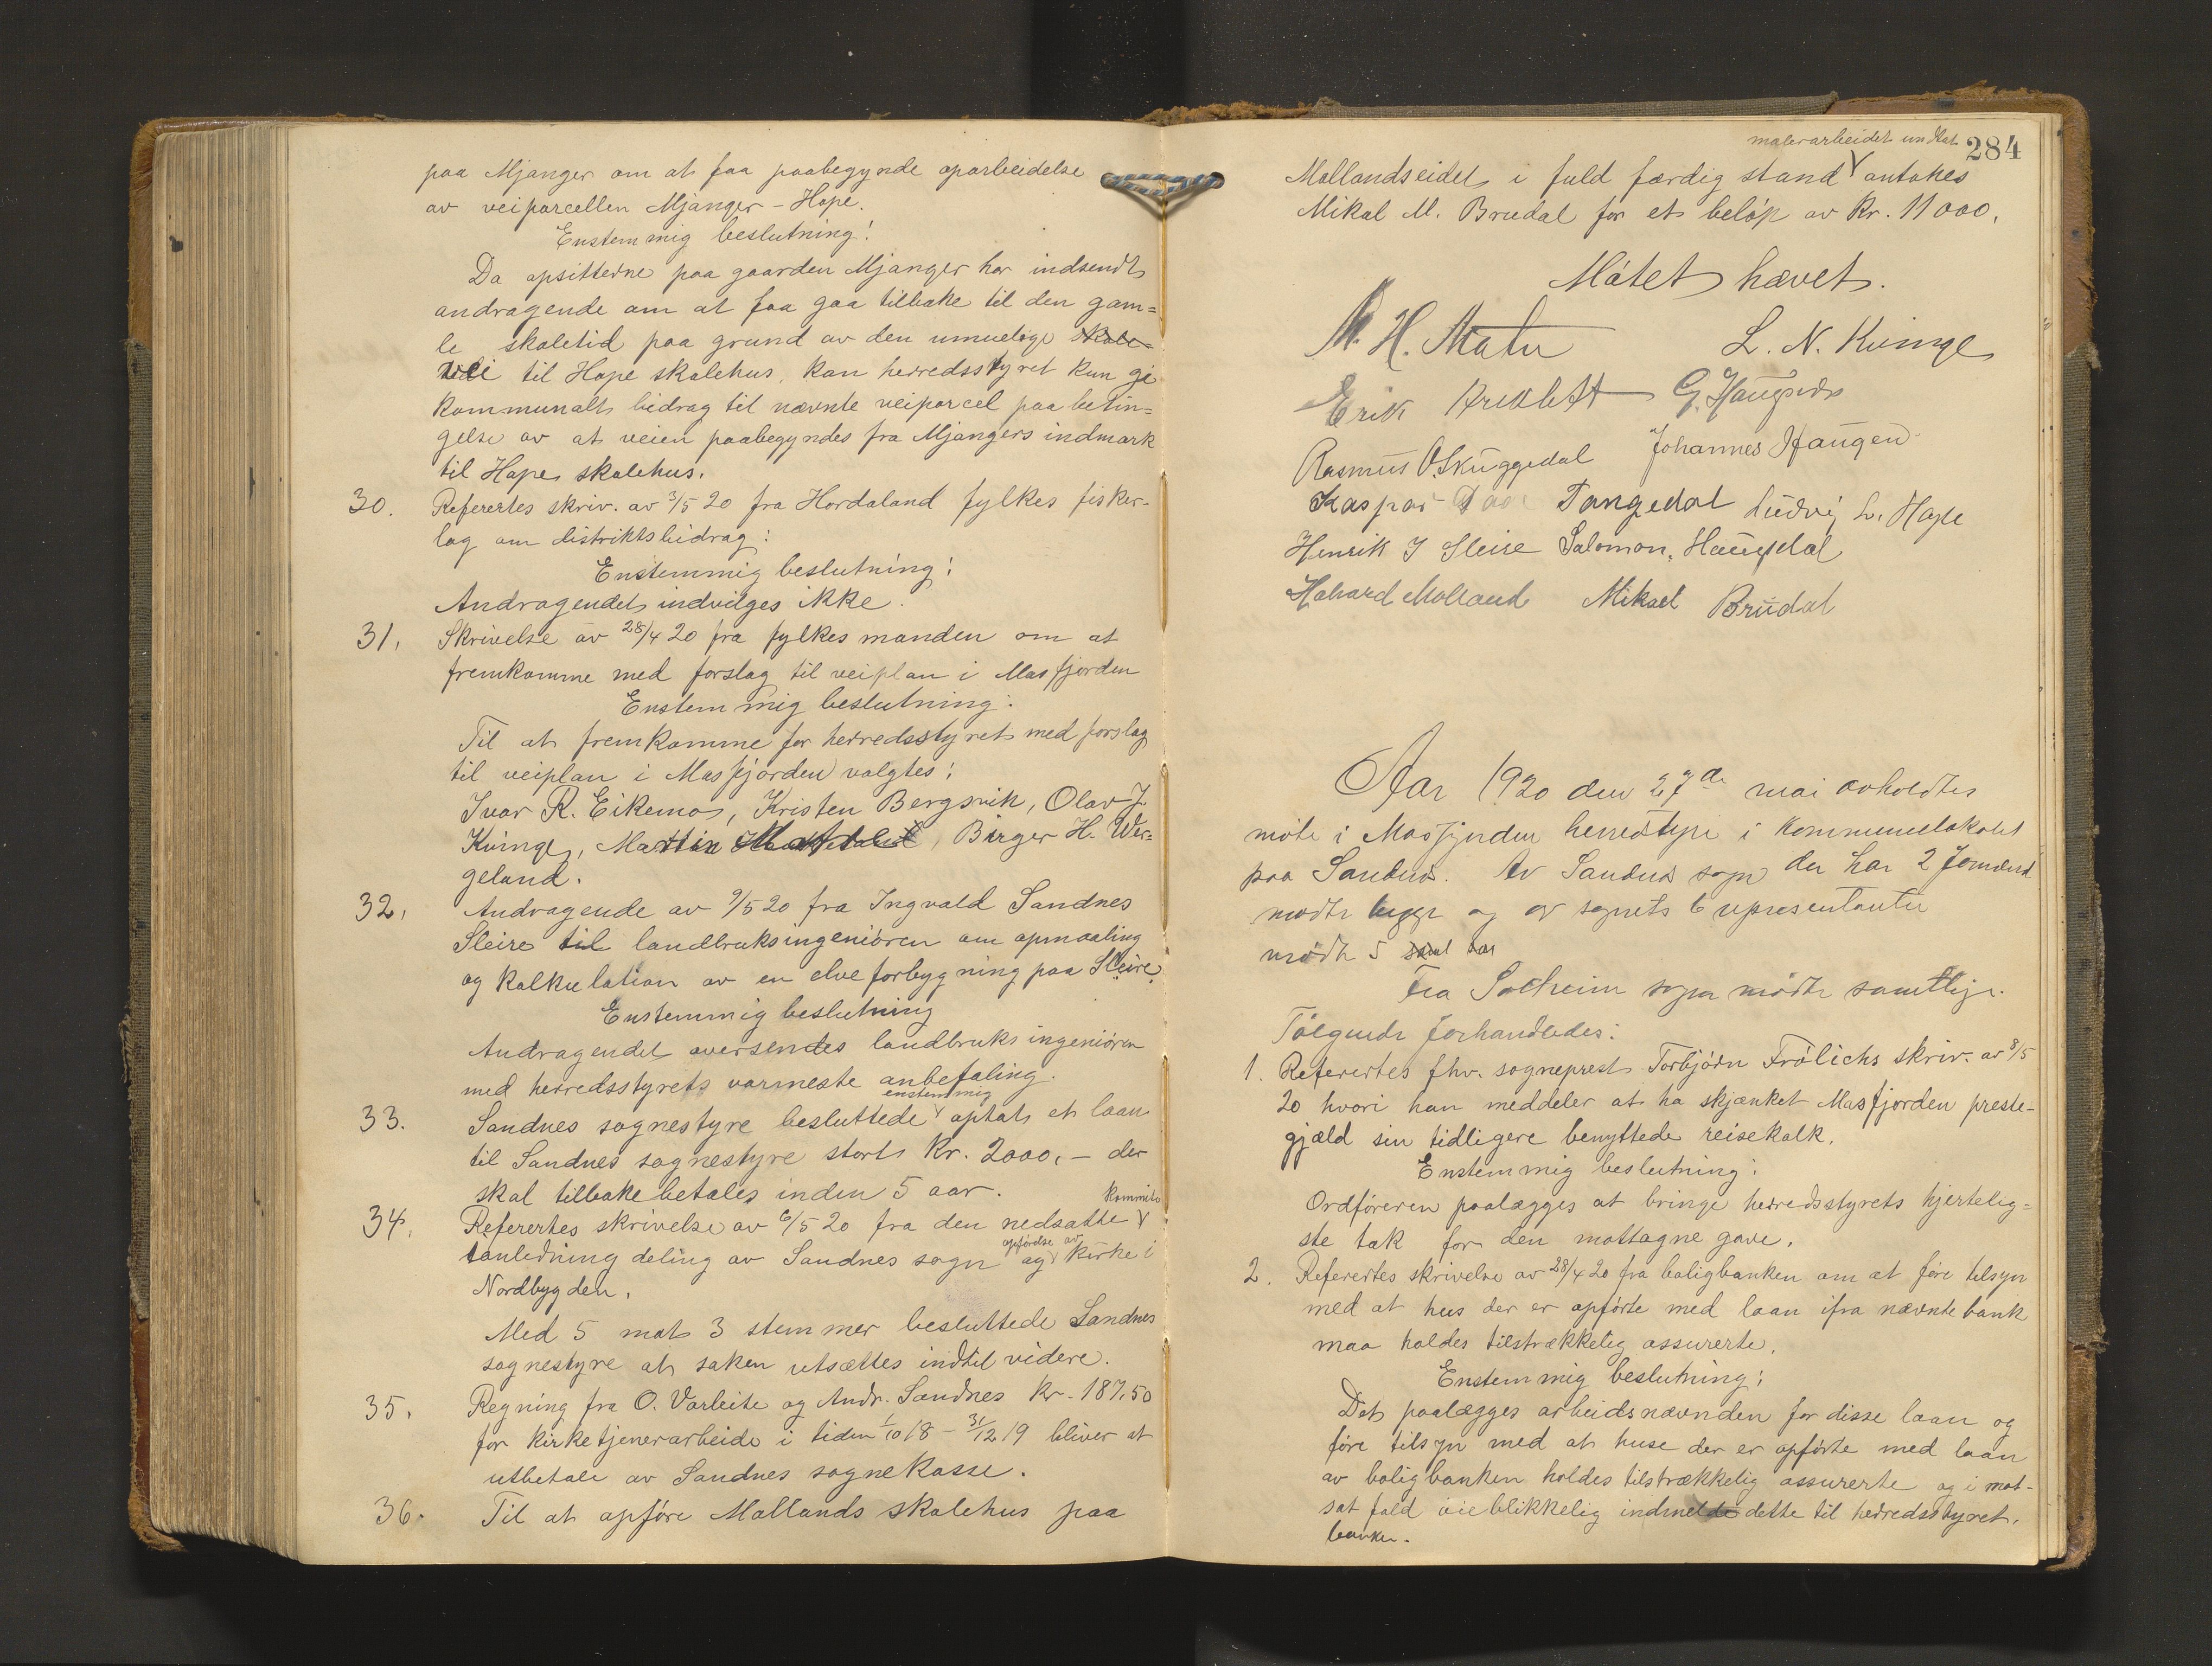 paa Mjanger om at faa paabegynde oparbeidelse
av veiparcellen Mjanger - Hope.
Enstemmig beslutning:
Da opsitterne paa gaarden Mjanger har indsendt
andragende om at faa gaa tilbake til den gam=
le skoletid paa grund av den umuelige skole-
vei til Hope skolehus, kan herredsstyret kun gi
kommunalt bidrag til nævnte veiparcel paa betin=
gelse av at veien paabegyndes fra Mjangers indmark
til Hope skolehus.
30. Referertes skriv. av 3/5 20 fra Hordaland fylkes fisker-
lag om distriktsbidrag:
Enstemmig beslutning:
Andragendet indvilges ikke.
31. Skrivelse av 28/4 20 fra fylkesmanden om at
fremkomme med forslag til veiplan i Masfjorden
Enstemmig beslutning:
Til at fremkomme for herredsstyret med forslag
til veiplan i Masfjorden valgtes:
Ivar R. Eikemo, Kristen Bergsvik, Olav J.
Kvinge, Martin, Birger H. Wer=
geland.
32. Andragende av 9/5 20 fra Ingvald Sandnes
Sleire til landbruksingeniören om opmaaling
og kalkulation av en elveforbygning paa Sleire.
Enstemmig beslutning
Andragendet oversendes landbruksingeniören
med herredsstyrets varmeste anbefaling.
enstemmig
33. Sandnes sognestyre besluttede optat et laan
til Sandnes sognestyre stort kr. 2000,- der
skal tilbakebetales inden 5 aar.
kommite
34. Referertes skrivelse av 6/5 20 fra den nedsatte
opförelse av
i anledning deling av Sandnes sogn og kirke i
Nordbygden.
Med 5 mot 3 stemmer besluttede Sandnes
sognestyre at saken utsættes indtil videre.
35. Regning fra O. Varleite og Andr. Sandnes kr. 187,50
for kirketjenerarbeide i tiden 1/10 18 - 31/12 19 bliver at
utbetale av Sandnes sognekasse.
36. Til at opföre Mollands skolehus paa
malerarbeidet undtat
284
Mollandseidet i fuld færdig stand antokes
Mikal M. Brudal for et belöp av kr. 11000.
Mötet hævet.
M. H. Matre L. N. Kvinge
Erik G. Haugsvær
Rasmus O. Skuggedal Johannes Haugen
Kaspar Tangedal Ludvig L. Hope
Henrik J Sleire Salomon Haugsdal
Halvard Molland Mikael Brudal
Aar 1920 den 27de mai avholdtes
möte i Masfjorden herredstyre i kommunelokalet
paa Sandnes. Av Sandnes sogn der har 2 formænd
mødte begge og av sognets 6 representanter
mödte 5
Fra Solheim sogn mödte samtlige.
Fölgende forhandledes:
1. Referertes fhv. sogneprest Torbjörn Frölichs skriv. av 8/5
20 hvori han meddeler at ha skjænket Masfjorden preste-
gjæld sin tidligere benyttede reisekalk.
Enstemmig beslutning:
Ordföreren paalægges at bringe herredsstyrets hjertelig=
ste tak for den mottagne gave.
2. Referertes skrivelse av 28/4 20 fra boligbanken om at före tilsyn
med at hus der er opförte med laan ifra nævnte bank
maa holdes tilstrækkelig assurerte.
Enstemmig beslutning:
Det paalægges arbeidsnævnden for disse laan og
före tilsyn med at huse der er opförte med laan
av boligbanken holdes tilstrækkelig assurerte og i mot-
sat fald öieblikkelig indmelde dette til herredsstyret.
banken.